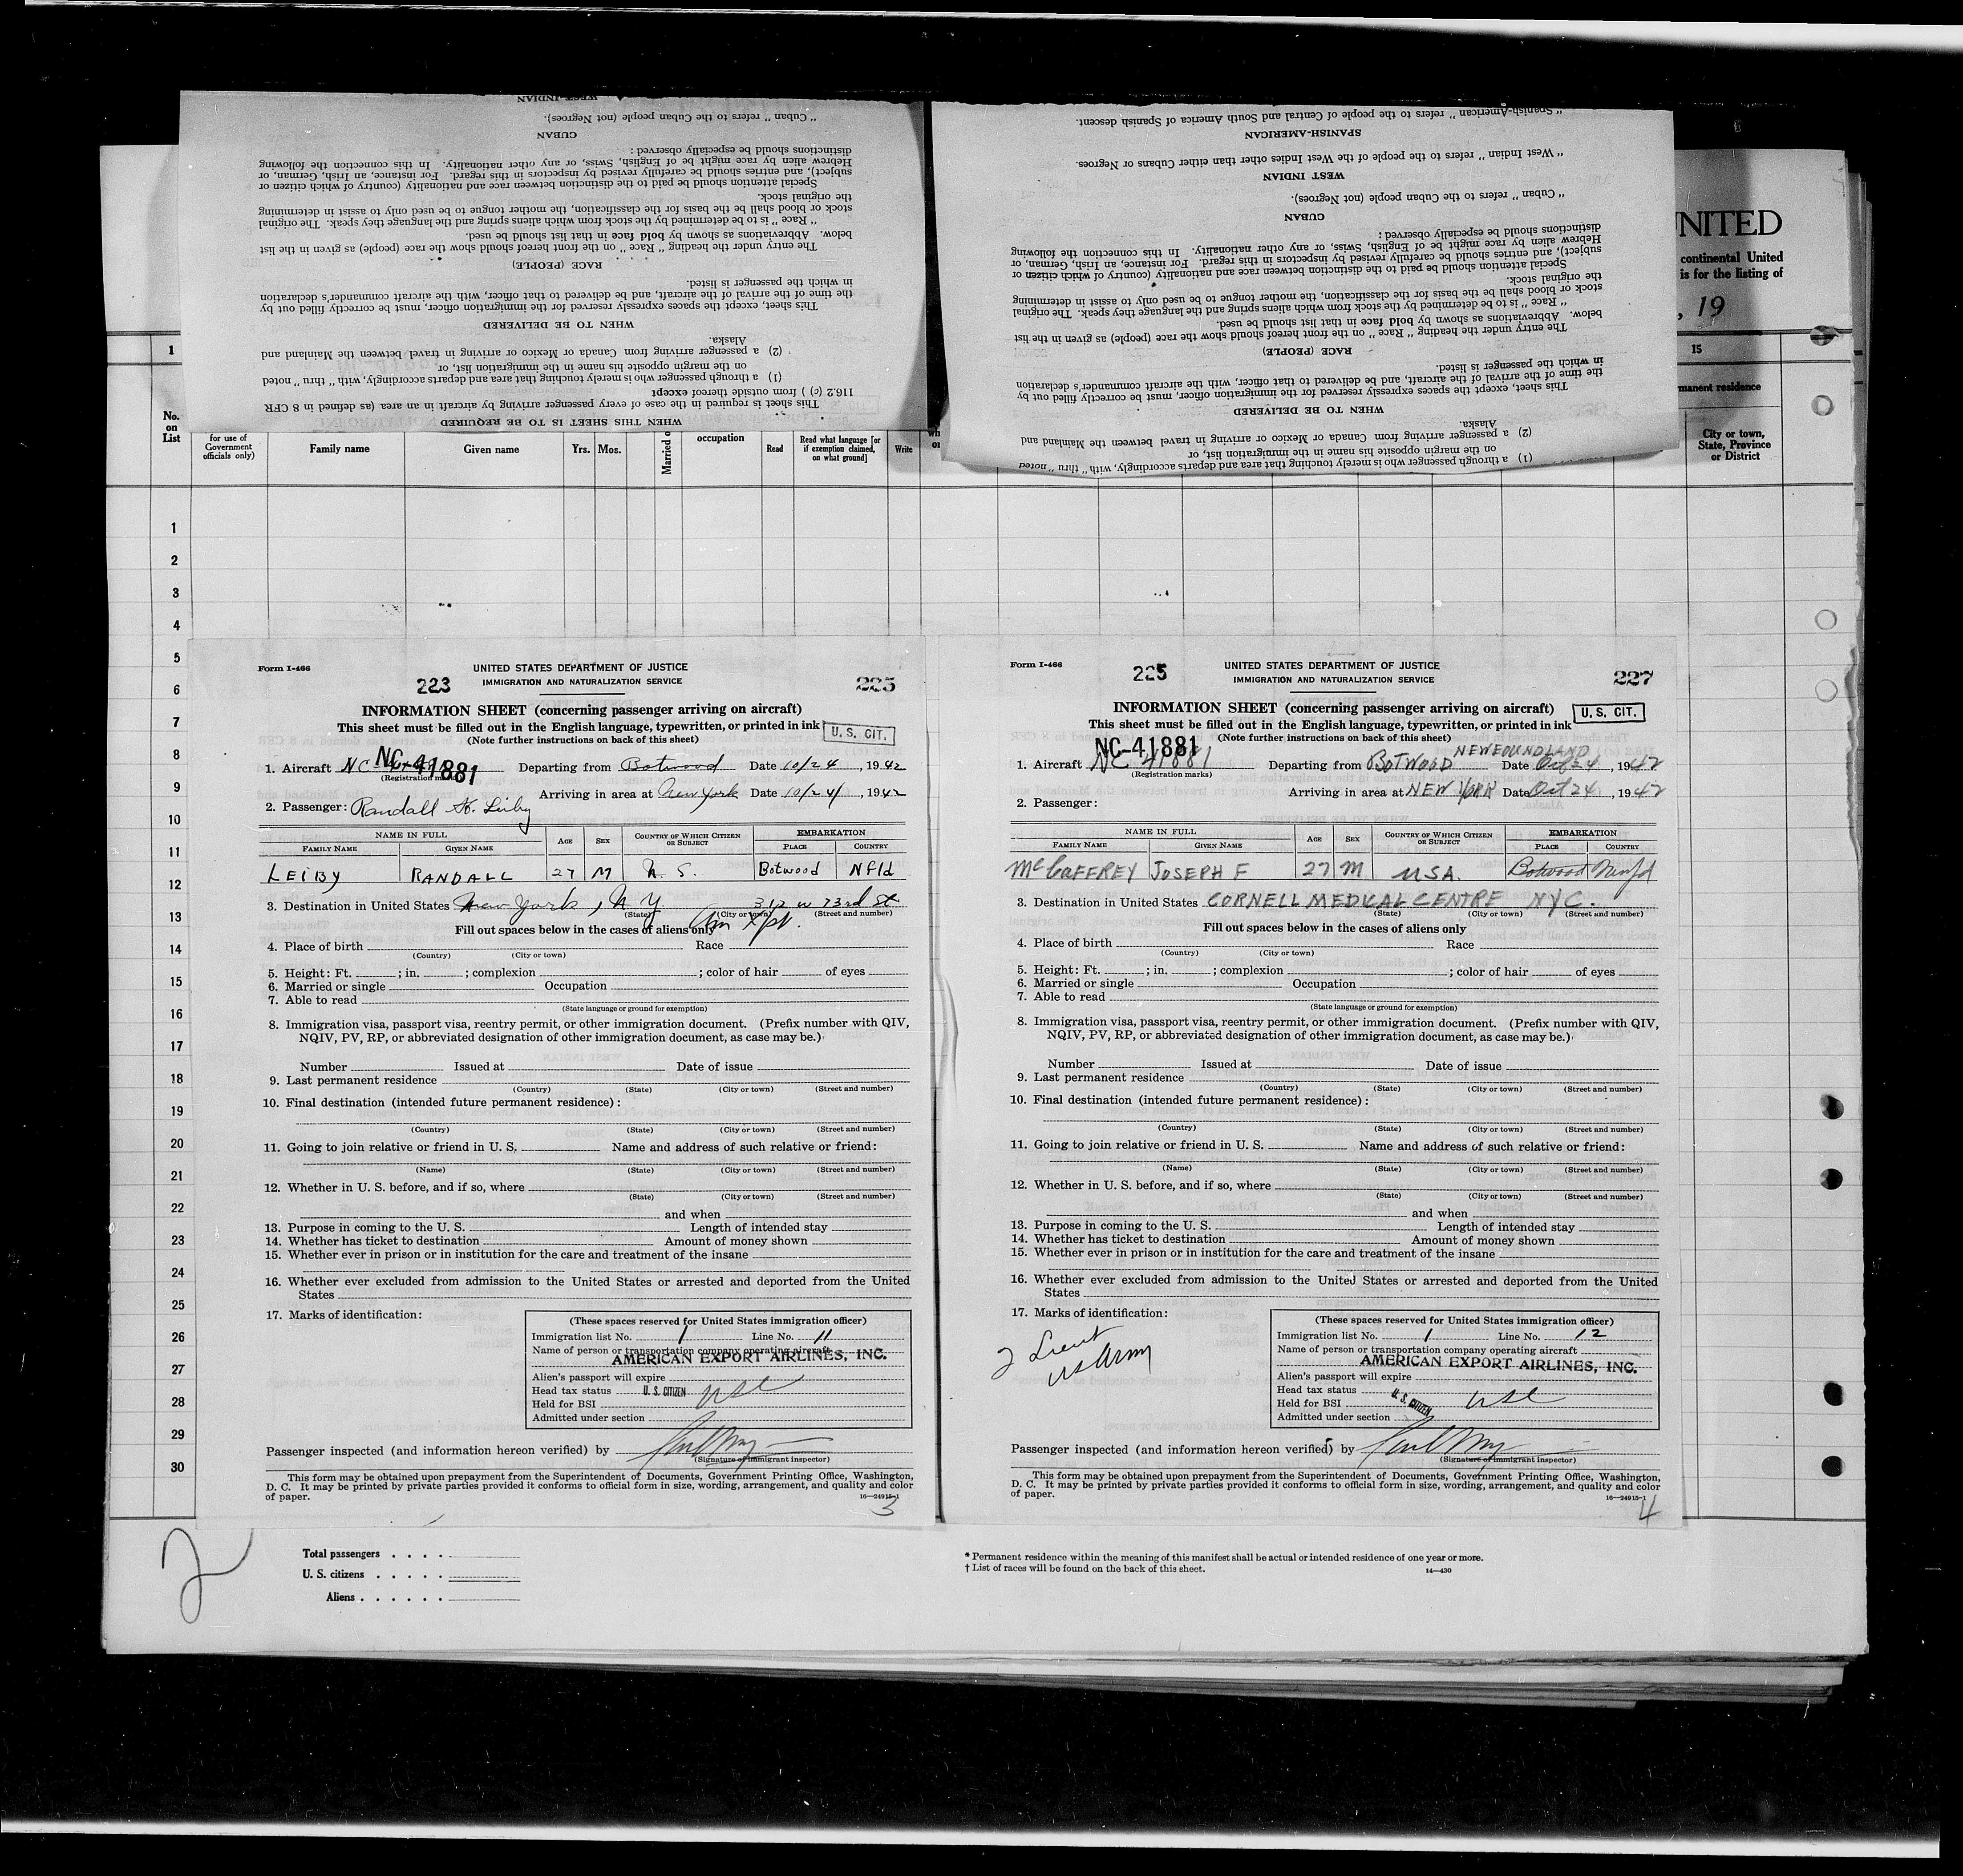 WEST INDIAN
" Cuban " refers to the Cuban people (not Negroes).
CUBAN
distinctions should be especially observed :
Hebrew alien by race might be of English, Swiss, or any other nationality. In this connection the following
subject), and entries should be carefully revised by inspectors in this regard. For instance, an Irish, German, or
Special attention should be paid to the distinction between race and nationality (country of which citizen or
the original stock.
stock or blood shall be the basis for the classification, the mother tongue to be used only to assist in determining
" Race " is to be determined by the stock from which aliens spring and the language they speak. The original
below. Abbreviations as shown by bold face in that list should be used.
The entry under the heading " Race " on the front hereof should show the race (people) as given in the list
RACE (PEOPLE)
in which the passenger is listed.
the time of the arrival of the aircraft, and be delivered to that officer, with the aircraft commander's declaration
This sheet, except the spaces expressly reserved for the immigration officer, must be correctly filled out by
WHEN TO BE DELIVERED
Alaska.
(2) a passenger arriving from Canada or Mexico or arriving in travel between the Mainland and
on the margin opposite his name in the immigration list, or
(1) a through passenger who is merely touching that area and departs accordingly, with " thru " noted
116.2 (c) ) from outside thereof except
This sheet is required in the case of every passenger arriving by aircraft in an area (as defined in 8 CFR
WHEN THIS SHEET IS TO BE REQUIRED
" Spanish-American " refers to the people of Central and South America of Spanish descent.
SPANISH-AMERICAN
" West Indian " refers to the people of the West Indies other than either Cubans or Negroes.
WEST INDIAN
" Cuban " refers to the Cuban people (not Negroes).
CUBAN
distinctions should be especially observed :
Hebrew alien by race might be of English, Swiss, or any other nationality. In this connection the following
subject), and entries should be carefully revised by inspectors in this regard. For instance, an Irish, German, or
Special attention should be paid to the distinction between race and nationality (country of which citizen or
the original stock.
stock or blood shall be the basis for the classification, the mother tongue to be used only to assist in determining
" Race " is to be determined by the stock from which aliens spring and the language they speak. The original
below. Abbreviations as shown by bold face in that list should be used.
The entry under the heading " Race " on the front hereof should show the race (people) as given in the list
RACE (PEOPLE)
in which the passenger is listed.
the time of the arrival of the aircraft, and be delivered to that officer, with the aircraft commander's declaration
This sheet, except the spaces expressly reserved for the immigration officer, must be correctly filled out by
WHEN TO BE DELIVERED
Alaska.
(2) a passenger arriving from Canada or Mexico or arriving in travel between the Mainland and
on the margin opposite his name in the immigration list, or
(1) a through passenger who is merely touching that area and departs accordingly, with " thru " noted
UNITED
continental United
is for the listing of
, 19
1
15
manent residence
No. on List
for use of Government officials only)
Family name
Given name
Yrs. Mos.
Married o
occupation
Read
Read what language [or if exemption claimed, on what ground]
Write
City or town, State, Province or District
1
2
3
4
5
6
7
8
9
10
11
12
13
14
15
16
17
18
19
20
21
22
23
24
25
26
27
28
29
30
Form I-466
UNITED STATES DEPARTMENT OF JUSTICE
223 IMMIGRATION AND NATURALIZATION SERVICE 225
INFORMATION SHEET (concerning passenger arriving on aircraft)
This sheet must be filled out in the English language, typewritten, or printed in ink
(Note further instructions on back of this sheet)
U. S. CIT.
NC-41881
1. Aircraft NC- Departing from Botwood Date 10/24, 1942
(Registration marks)
Arriving in area at New York Date 10/24/, 1942
2. Passenger: Randall H. Leiby
NAME IN FULL AGE SEX COUNTRY OF WHICH CITIZEN OR SUBJECT EMBARKATION
FAMILY NAME GIVEN NAME PLACE COUNTRY
LEIBY RANDALL 27 M U. S. Botwood Nfld
3. Destination in United States New York, N.Y. 312 W 73rd St
(State) (City or town) (Street and number)
Fill out spaces below in the cases of aliens only
4. Place of birth Race
(Country) (City or town)
5. Height: Ft. ; in. ; complexion ; color of hair of eyes
6. Married or single Occupation
7. Able to read
(State language or ground for exemption)
8. Immigration visa, passport visa, reentry permit, or other immigration document. (Prefix number with QIV,
NQIV, PV, RP, or abbreviated designation of other immigration document, as case may be.)
Number Issued at Date of issue
9. Last permanent residence
(Country) (State) (City or town) (Street and number)
10. Final destination (intended future permanent residence) :
(Country) (State) (City or town) (Street and number)
11. Going to join relative or friend in U. S. Name and address of such relative or friend:
(Name) (State) (City or town) (Street and number)
12. Whether in U. S. before, and if so, where
(State) (City or town) (Street and number)
and when
13. Purpose in coming to the U. S. Length of intended stay
14. Whether has ticket to destination Amount of money shown
15. Whether ever in prison or in institution for the care and treatment of the insane
16. Whether ever excluded from admission to the United States or arrested and deported from the United
States
17. Marks of identification:
(These spaces reserved for United States immigration officer)
Immigration list No. 1 Line No. 11
Name of person or transportation company operating aircraft
AMERICAN EXPORT AIRLINES, INC.
Alien's passport will expire
Head tax status U. S. CITIZEN USC
Held for BSI
Admitted under section
Passenger inspected (and information hereon verified) by
(Signature of immigrant inspector)
This form may be obtained upon prepayment from the Superintendent of Documents, Government Printing Office, Washington,
D. C. It may be printed by private parties provided it conforms to official form in size, wording, arrangement, and quality and color
of paper. 16—24915-1
3
Form I-466
UNITED STATES DEPARTMENT OF JUSTICE
225 IMMIGRATION AND NATURALIZATION SERVICE 227
INFORMATION SHEET (concerning passenger arriving on aircraft)
This sheet must be filled out in the English language, typewritten, or printed in ink
(Note further instructions on back of this sheet)
U. S. CIT.
NC-41881 NEWFOUNDLAND
1. Aircraft NC-41881 Departing from BOTWOOD Date Oct 24, 1942
(Registration marks)
Arriving in area at NEW YORK Date Oct 24, 1942
2. Passenger:
NAME IN FULL AGE SEX COUNTRY OF WHICH CITIZEN OR SUBJECT EMBARKATION
FAMILY NAME GIVEN NAME PLACE COUNTRY
McCAFFREY JOSEPH F 27 M USA. Botwood Newfd
3. Destination in United States CORNELL MEDICAL CENTRE NYC.
(State) (City or town) (Street and number)
Fill out spaces below in the cases of aliens only
4. Place of birth Race
(Country) (City or town)
5. Height: Ft. ; in. ; complexion ; color of hair of eyes
6. Married or single Occupation
7. Able to read
(State language or ground for exemption)
8. Immigration visa, passport visa, reentry permit, or other immigration document. (Prefix number with QIV,
NQIV, PV, RP, or abbreviated designation of other immigration document, as case may be.)
Number Issued at Date of issue
9. Last permanent residence
(Country) (State) (City or town) (Street and number)
10. Final destination (intended future permanent residence) :
(Country) (State) (City or town) (Street and number)
11. Going to join relative or friend in U. S. Name and address of such relative or friend:
(Name) (State) (City or town) (Street and number)
12. Whether in U. S. before, and if so, where
(State) (City or town) (Street and number)
and when
13. Purpose in coming to the U. S. Length of intended stay
14. Whether has ticket to destination Amount of money shown
15. Whether ever in prison or in institution for the care and treatment of the insane
16. Whether ever excluded from admission to the United States or arrested and deported from the United
States
17. Marks of identification:
2 Lieut
US Army
(These spaces reserved for United States immigration officer)
Immigration list No. 1 Line No. 12
Name of person or transportation company operating aircraft
AMERICAN EXPORT AIRLINES, INC.
Alien's passport will expire
Head tax status U. S. CITIZEN USC
Held for BSI
Admitted under section
Passenger inspected (and information hereon verified) by
(Signature of immigrant inspector)
This form may be obtained upon prepayment from the Superintendent of Documents, Government Printing Office, Washington,
D. C. It may be printed by private parties provided it conforms to official form in size, wording, arrangement, and quality and color
of paper. 16—24915-1
4
2
Total passengers . . . .
U. S. citizens . . . . .
Aliens . . . . . .
* Permanent residence within the meaning of this manifest shall be actual or intended residence of one year or more.
† List of races will be found on the back of this sheet. 14—430